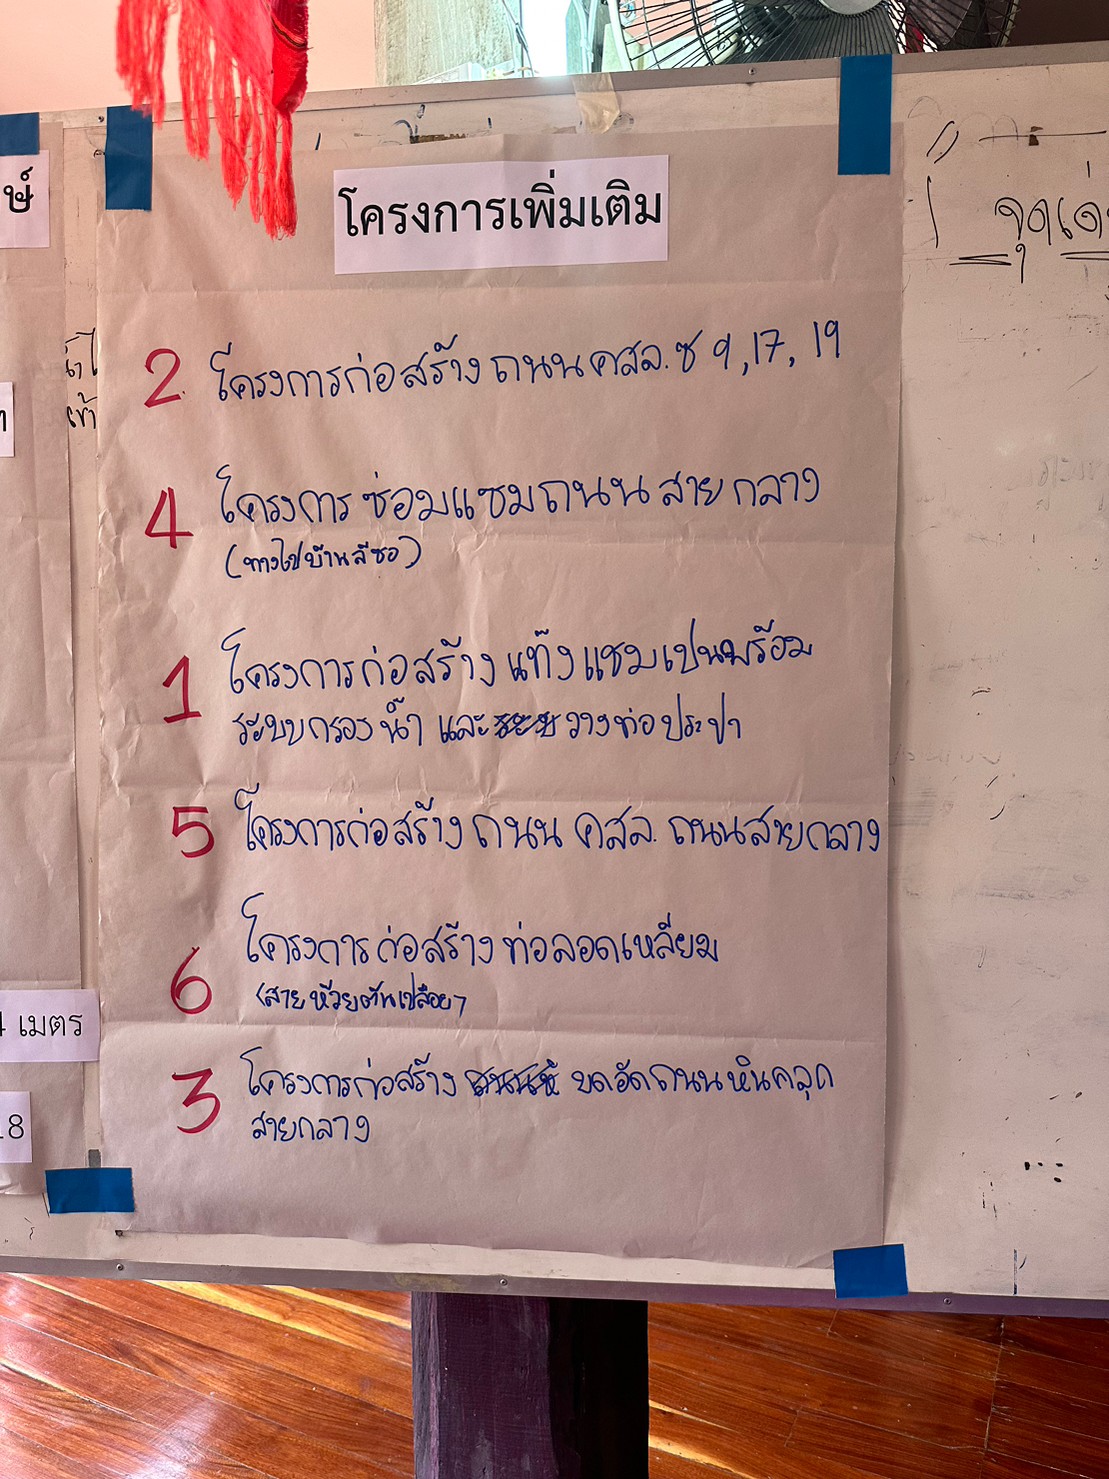 โครงการเพิ่มเติม
2 โครงการก่อสร้างถนน คสล. ซ 9, 17, 19
4 โครงการ ซ่อมแซมถนน สายกลาง
(ทางไปบ้านลีซอ)
1 โครงการก่อสร้าง แท๊งแชมเปนพร้อม
ระบบกรองน้ำ และ วางท่อประปา
5 โครงการก่อสร้าง ถนน คสล. ถนนสายกลาง
6 โครงการ ก่อสร้าง ท่อลอดเหลี่ยม
(สายห้วยต้นเปลือย)
3 โครงการก่อสร้าง บดอัดถนน หินคลุก
สายกลาง
ษ์
เข้า
เมตร
จุดเด่